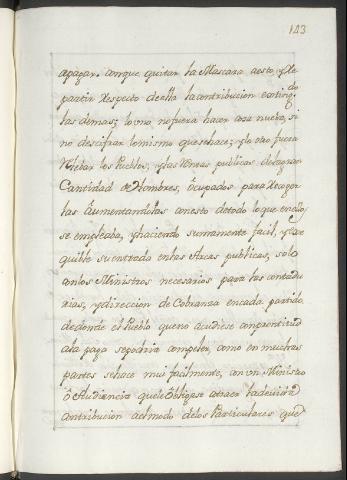 143
apagar, conque quitar la Mascara aesto, y Re
partir Respecto deella la contribucion extingdo
las demas; lo uno no fuera hacer cosa nueba, si
no descifrar lo mismo que se hace; y lo otro fuera
Relebar los Pueblos, y las Rentas publicas de tagran
Cantidad de Hombres, Ocupados para Recoger
las Aumentandolas conesto detodo lo que en ellos
se empleaba, y haciendo sumamente facil, y exe
quible su entrada enlas Arcas publicas, solo
con los Ministros necesarios para las contadu
rias, y direccion de Cobranza encada partido
de donde el Pueblo que no acudiese con puntitud
ala paga se podria compeler, como en muchas
partes se hace mui facilmente, con un Ministro
ò Audiencia que le Obligase atraer la devida
contribucion al modo delos Particulares que